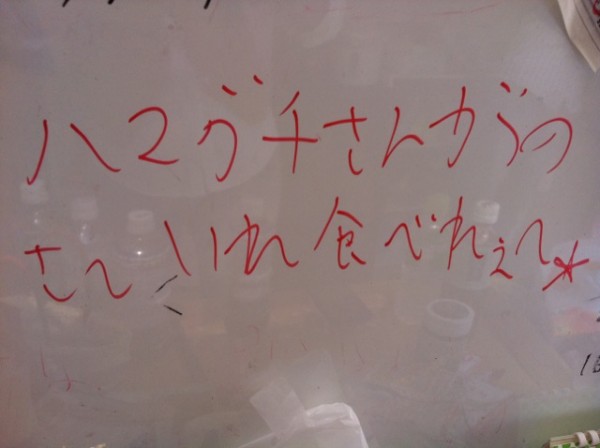 ハマグチさんからの
さしいれ食べれぇて☆